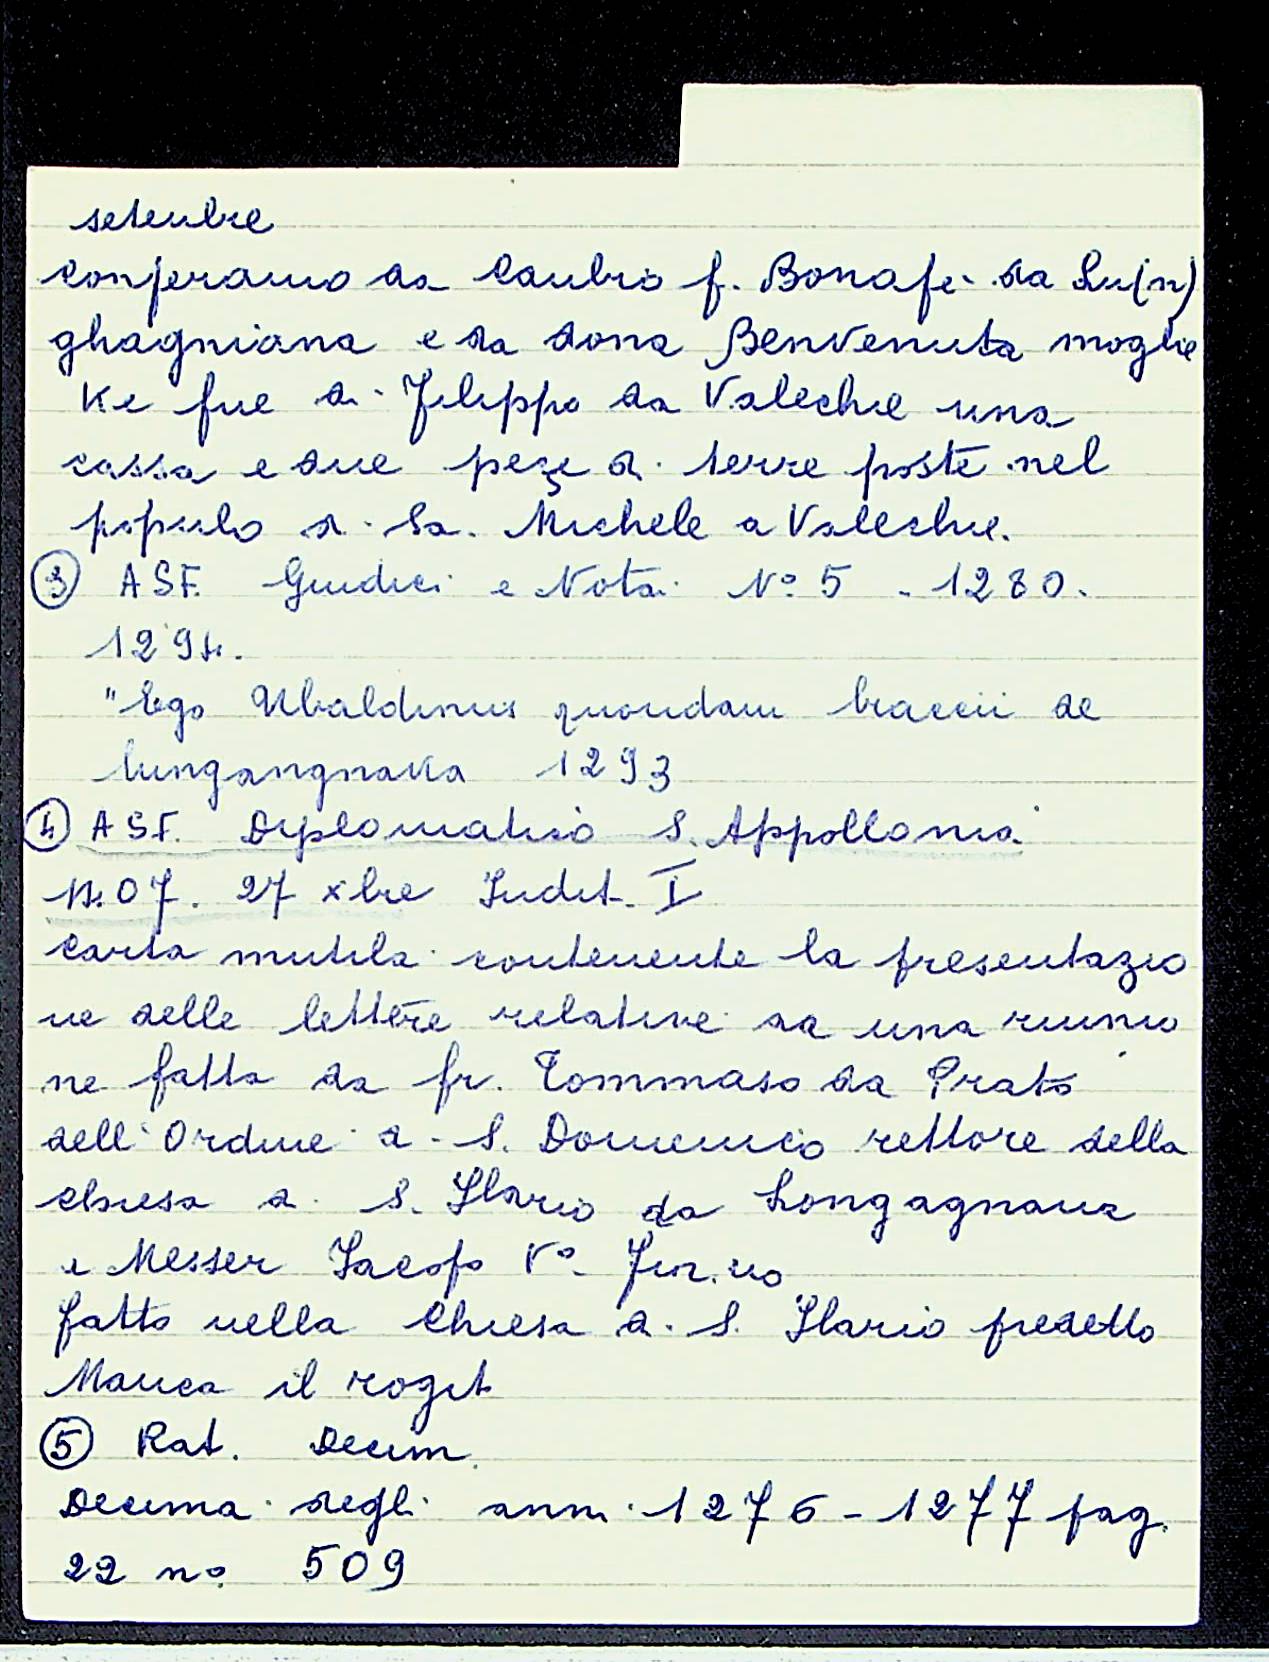 setenbre
Conperamo da Canbio f. Bonafe. da Lu(n)
ghagniana e da dona Benvenuta moglie
Ke fue di Filippo da Valechie una
cassa e due peçe di terre poste nel
popolo di Sa. Michele a Valechie.
③ ASF. Giudici e Notai N° 5 - 1280.
1294.
"Ego Ubaldinus quondam braccii de
lungangnana 1293
④ A S F. Diplomatico S. Appollonia
27 xbre Indit. I
carta mutila contenente la presentazio
ne delle lettere relative ad una riunio
ne fatta da fr. Tommaso da Prato
dell'Ordine di S. Domenico rettore della
chiesa di S. Ilario da Longagnana
e Messer Iacopo
fatto nella Chiesa di S. Ilario predetto
Manca il rogit
⑤ Rat. Decim.
Decima degli anni 1276 - 1277 pag.
22 no. 509